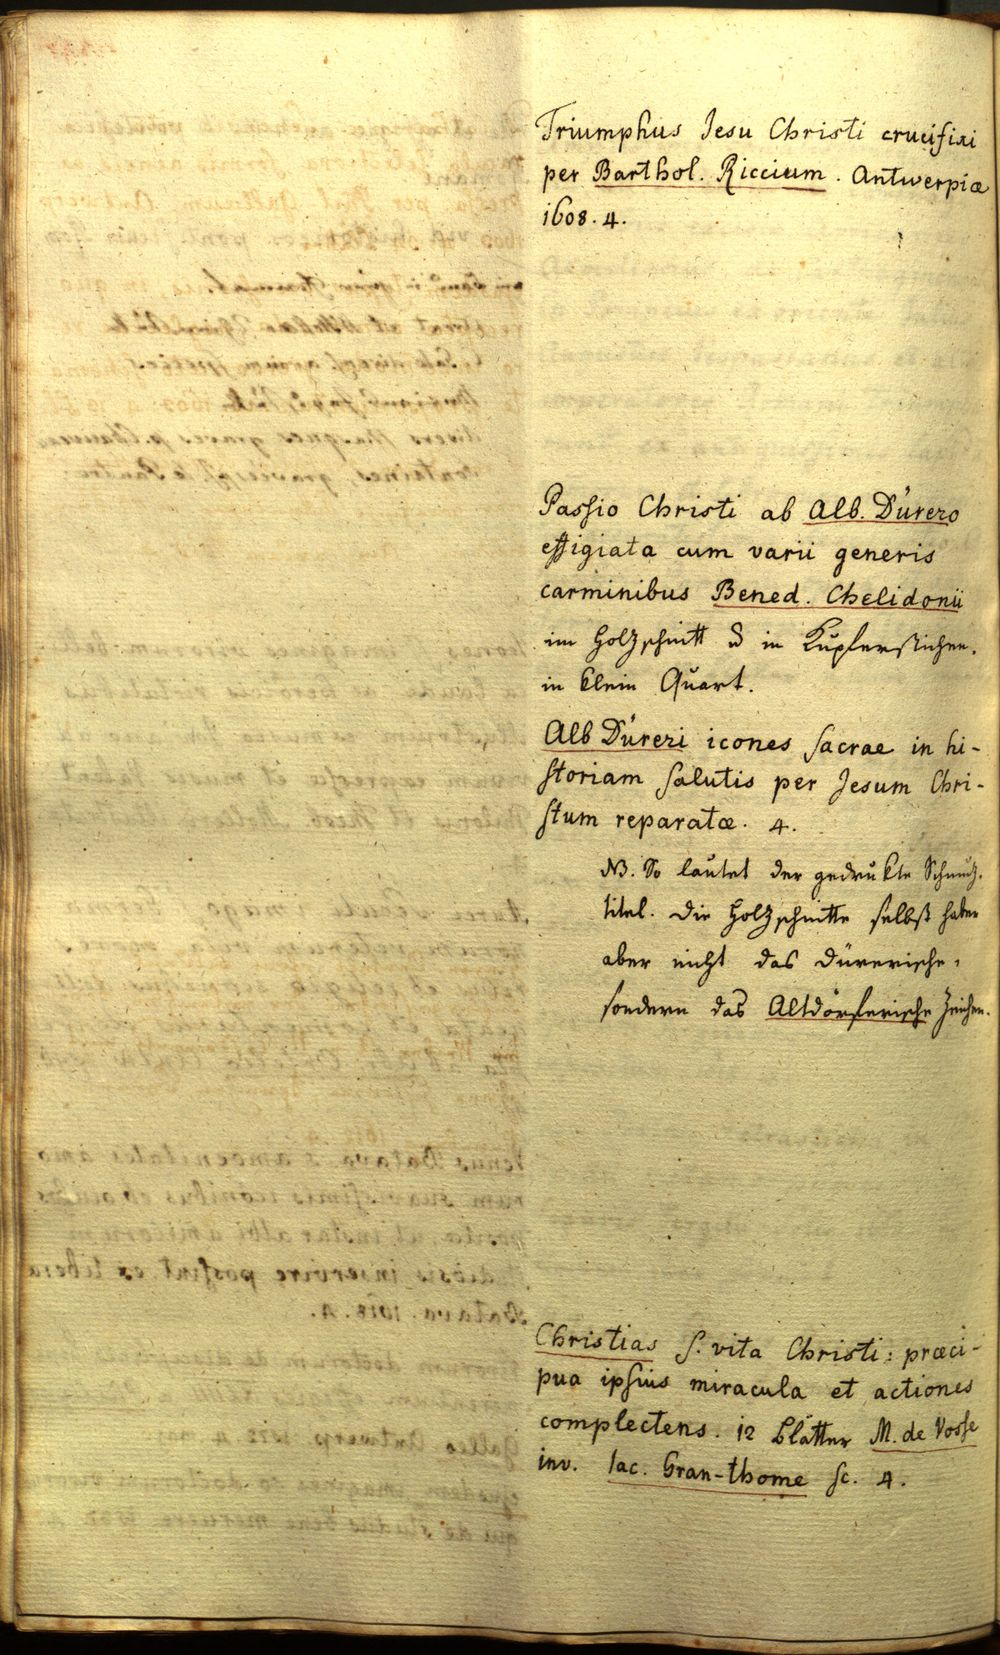 Triumphus Jesu Christi crucifixi
per Barthol. Riccium. Antwerpiæ
1608. 4.
Passio Christi ab Alb. Dürero
effigiata cum varii generis
carminibus Bened. Chelidonii
im Holzschnitt u in Kupferstichen.
in klein Quart.
Alb Düreri icones sacrae in hi-
storiam salutis per Jesum Chri-
stum reparatæ. 4.
NB. So lautet der gedrukte Schmuz-
titel. Die Holzschnitte selbst haben
aber nicht das Dürerische,
sondern das Altdörferische Zeichen.
Christias s. vita Christi: præci-
pua ipsius miracula et actiones
complectens. 12 Blätter M. de Vosse
inv. Iac. Gran-thome sc. 4.